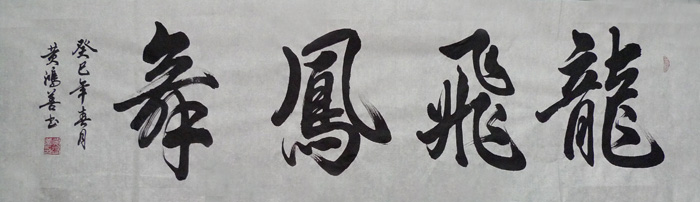 龍飛鳳舞
癸巳年春月
黄鴻善书